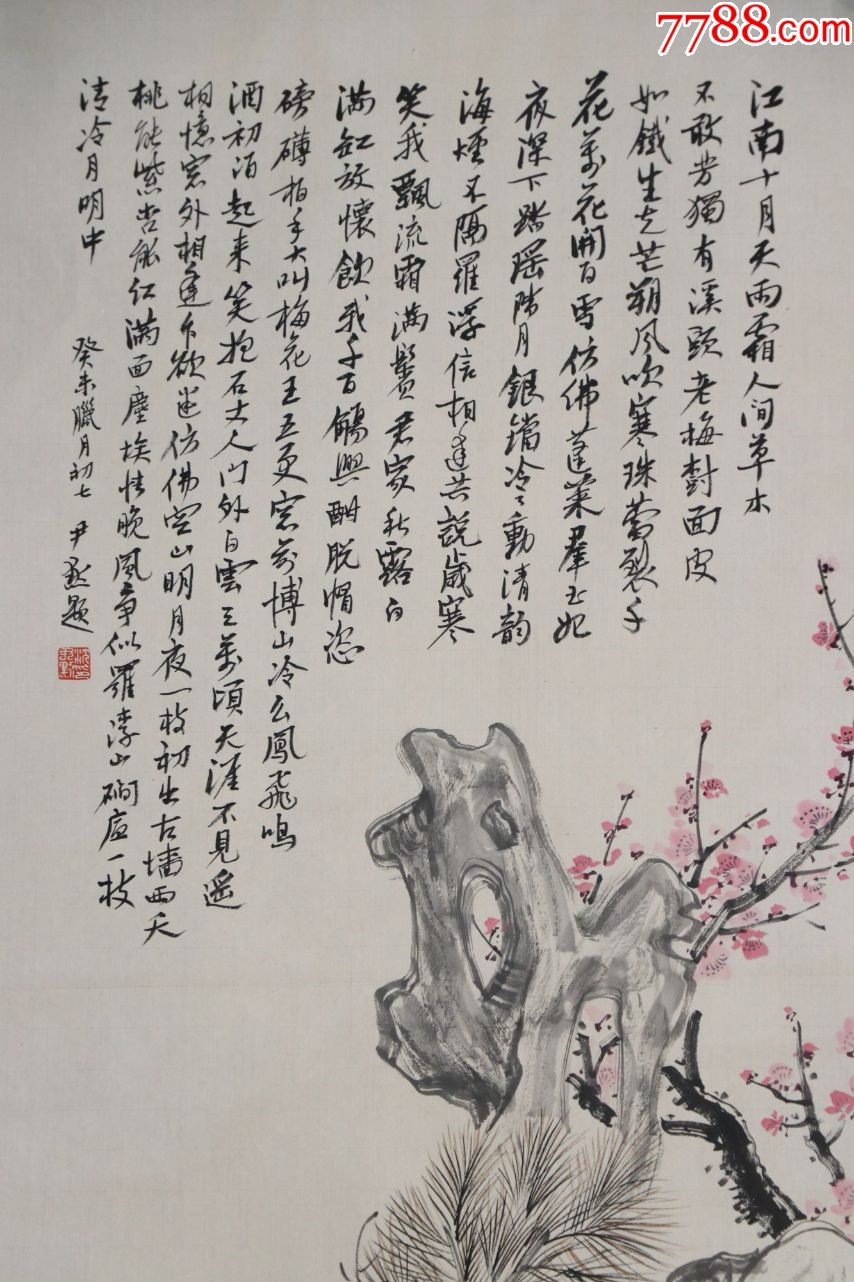 7788.com
江南十月天雨霜人间草木
不敢芳獨有溪頭老梅樹面皮
如鐵生光芒朔風吹寒珠蕾裂千
花萬花開白雪仿佛蓬萊羣玉妃
夜深下踏瑶階月銀鐺冷冷動清韵
海煙不隔羅浮信相逢共説歲寒
笑我飄流霜滿鬢君家秋露白
滿缸放懷飲我千百觴興酣脱帽恣
磅礴拍手大叫梅花王五更窓前博山冷么鳳飛鳴
酒初泊起来笑抱石丈人门外白雲三萬頃天涯不見遥
相憶窓外相逢乍欲迷仿佛空山明月夜一枝初出古墙西夭
桃能紫杏能红满面塵埃怯晚風争似羅浮山磵底一枝
清冷月明中
癸未臘月初七 尹默題